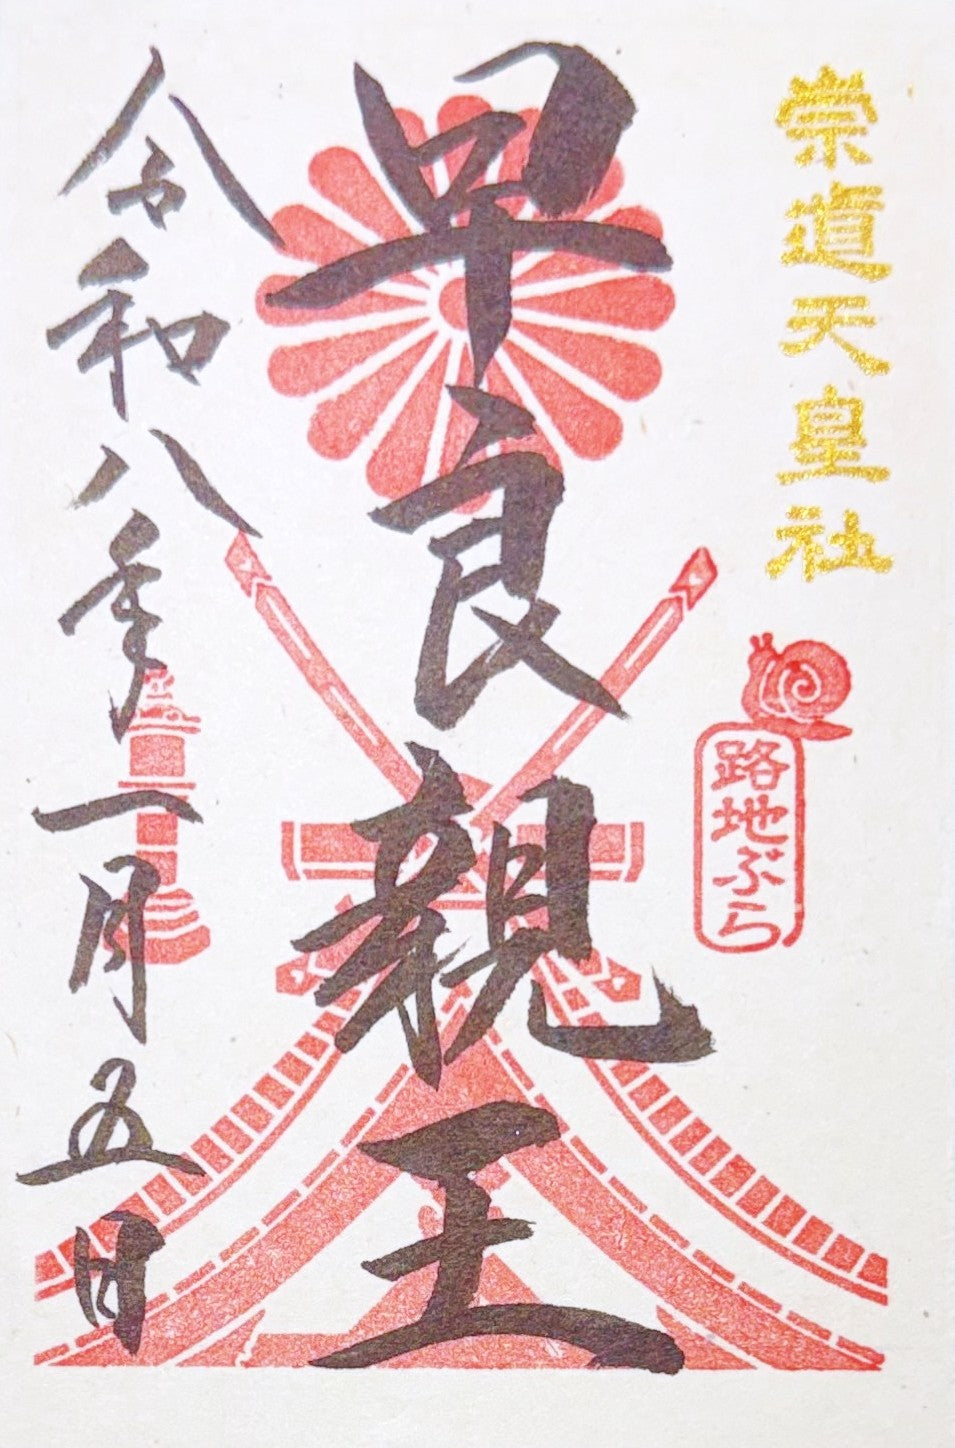 崇道天皇社
路地ぶら
早良親王
令和八年一月五日